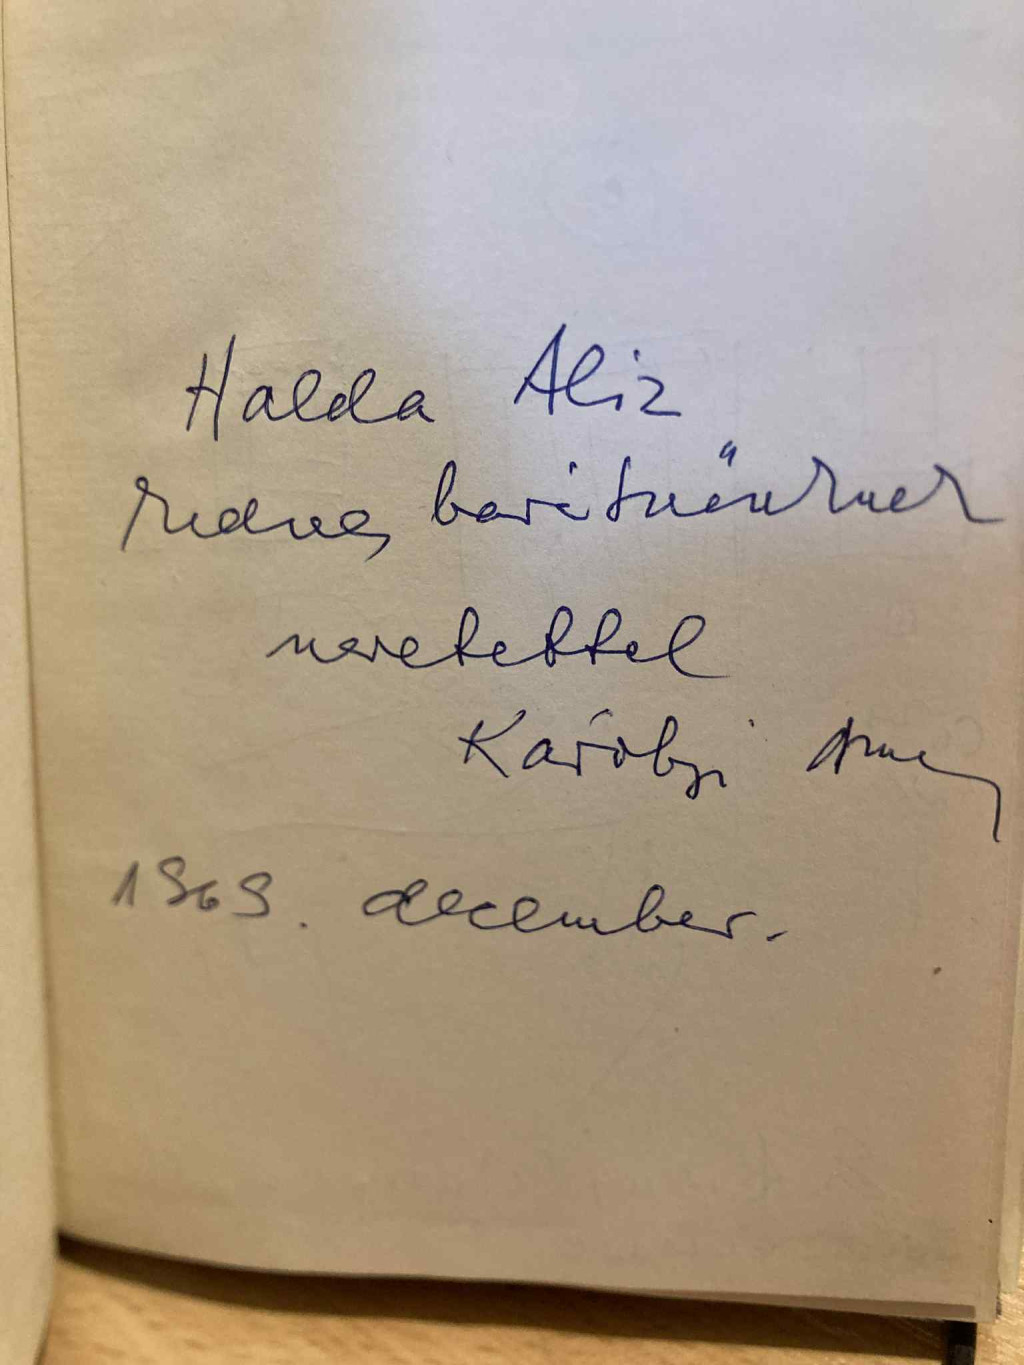 Halda Aliz
kedves barátnőnknek
szeretettel
Károlyi Amy
1969. december.